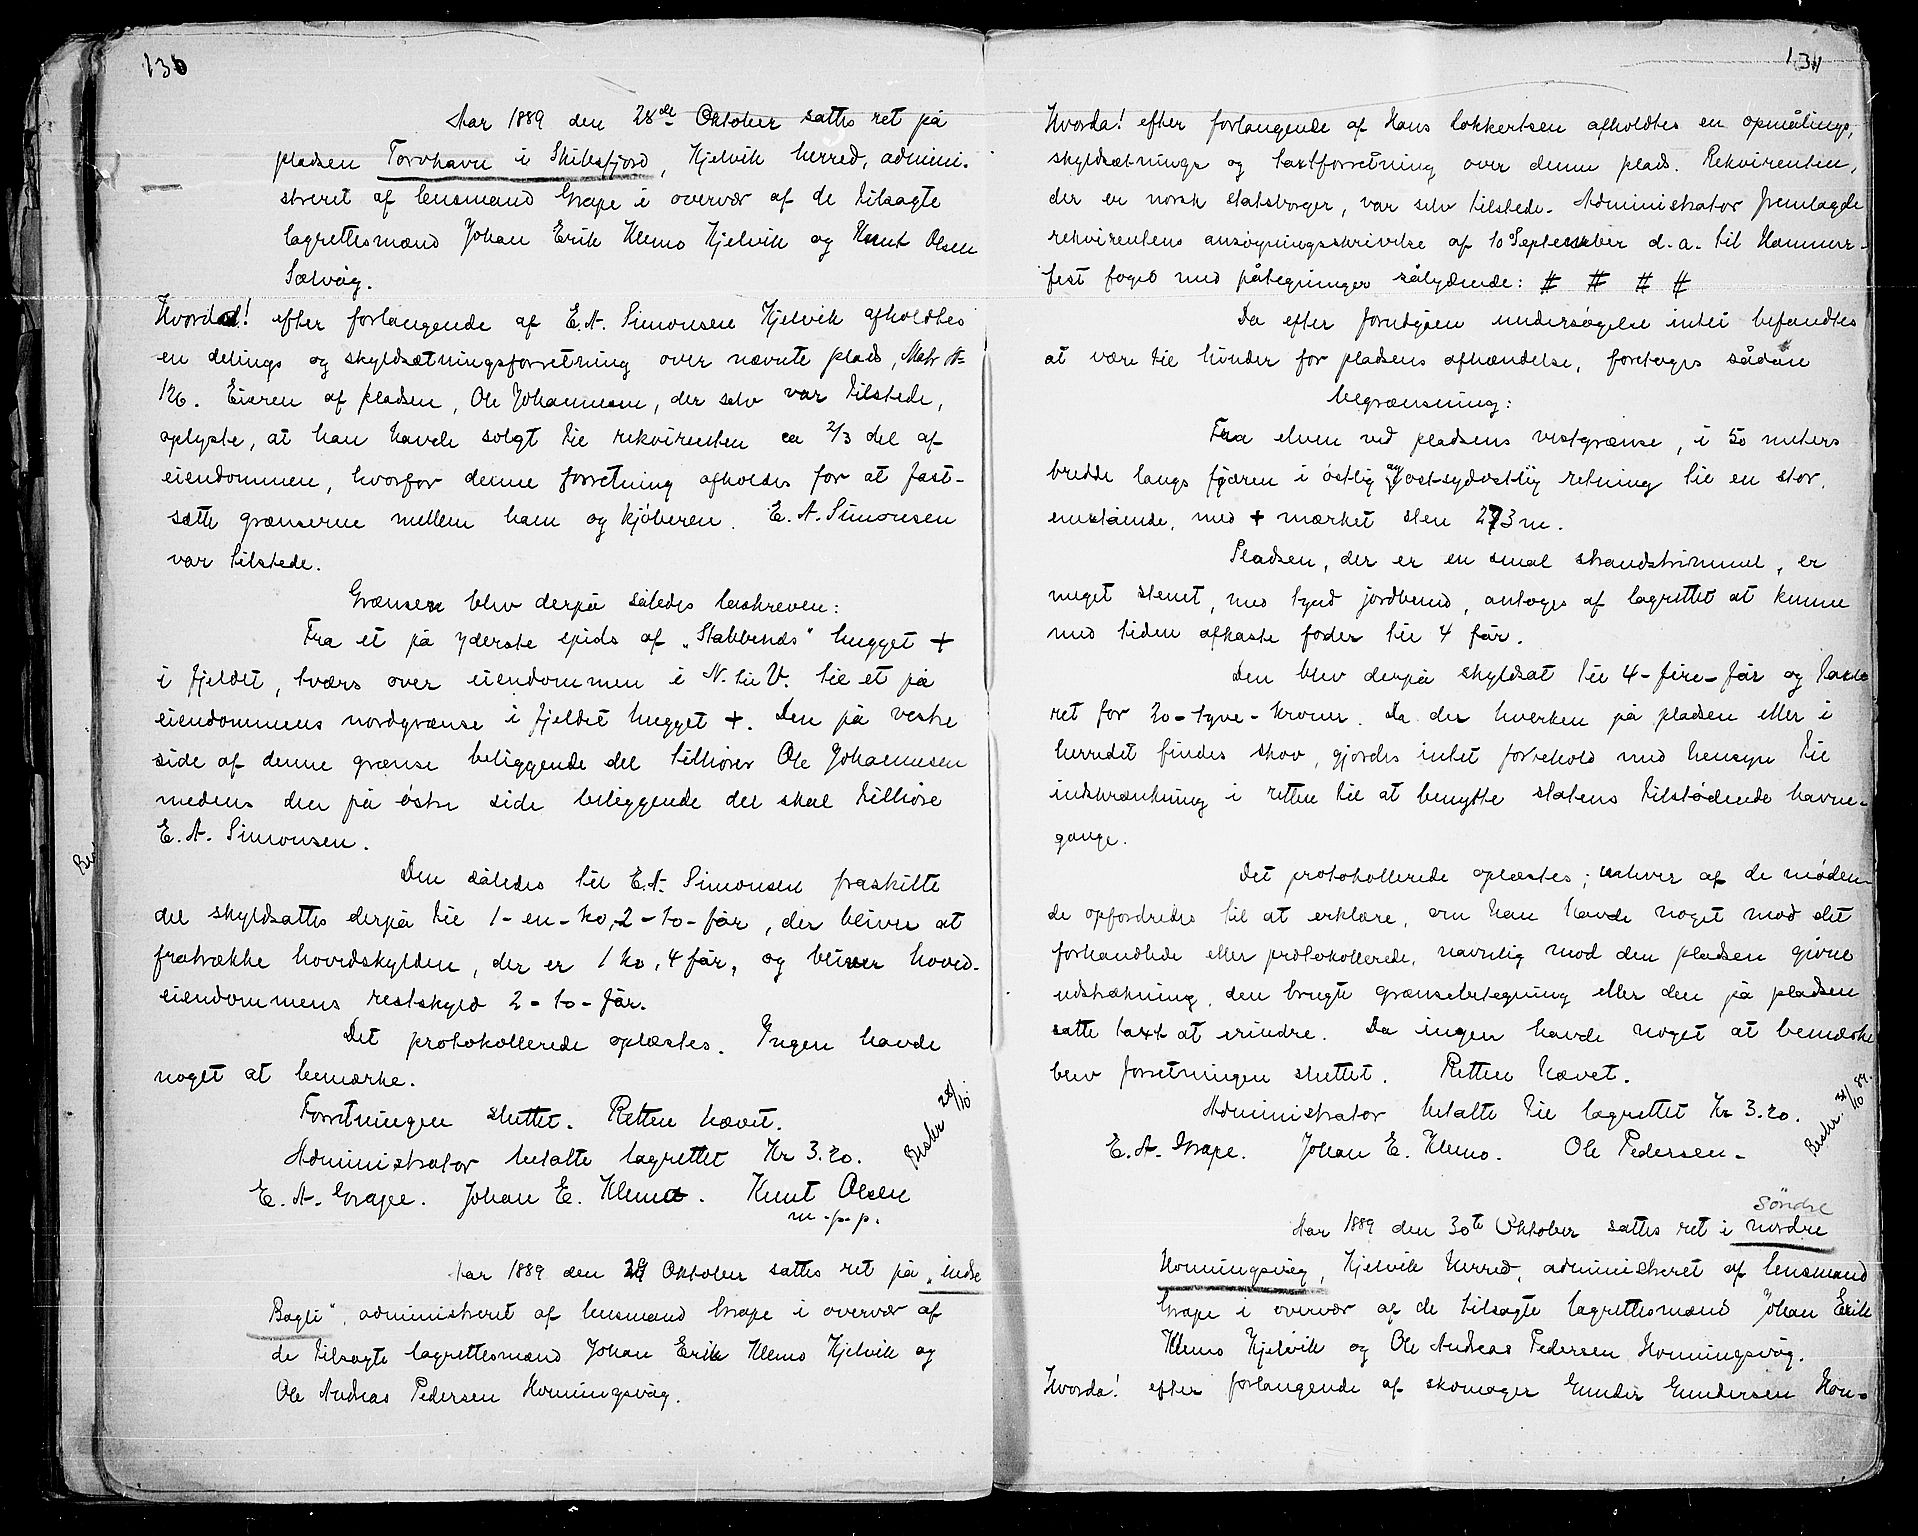 130
Aar 1889 den 28de Oktober sattes ret på
pladsen Torvhavn i Skibsfjord, Kjelvik herred, admini-
streret af lensmand Grape i overvær af de tilsagte
lagrettesmænd Johan Erik Klemo Kjelvik og Knut Olsen
Sælvåg.
Hvorda! efter forlangende af E. A. Simonsen Kjelvik afholdtes
en delings og skyldsætningsforretning over nævnte plads, Matr №
126. Eieren af pladsen, Ole Johannesen, der selv var tilstede,
oplyste, at han havde solgt til rekvirenten ca 2/3 del af
eiendommen, hvorfor denne forretning afholdes for at fast-
sætte grænserne mellem ham og kjøberen. E. A. Simonsen
var tilstede.
Grænsen blev derpå således beskreven:
Fra et på yderste spids af „Stabbenæs“ hugget +
i fjeldet, tværs over eiendommen i N. til V. til et på
eiendommens nordgrænse i fjeldet hugget +. Den på vestre
side af denne grænse beliggende del tilhører Ole Johannesen
medens den på østre side beliggende del skal tilhøre
E. A. Simonsen.
Den således til E. A. Simonsen fraskilte
del skyldsattes derpå til 1-en-ko, 2-to-får, der blive at
fratrække hovedskylden, der er 1 ko, 4 får, og bliver hoved-
eiendommens restskyld 2-to-får.
Det protokollerede oplæstes. Ingen havde
noget at bemærke.
Forretningen sluttet. Retten hævet.
Administrator betalte lagrettet Kr 3.20.
Beskr 28/10
E. A. Grape. Johan E. Klemo. Knut Olsen
m.p.p.
Aar 1889 den 29 Oktober sattes ret på „indre
Bagli“, administreret af lensmand Grape i overvær af
de tilsagte lagrettesmænd Johan Erik Klemo Kjelvik og
Ole Andreas Pedersen Honningsvåg.
131
Hvorda! efter forlangende af Hans Lokkertsen afholdtes en opmålings,
skyldsætnings og taxtforretning over denne plads. Rekvirenten,
der er norsk statsborger, var selv tilstede. Administrator fremlagde
rekvirentens ansøgningsskrivelse af 10 September d. a. til Hammer-
fest foged med påtegninger sålydende: # # # #
Da efter forudgåen undersøgelse intet befandtes
at være til hinder for pladsens afhændelse, foretoges sådan
begrænsning:
Fra elven ved pladsens vestgrænse, i 50 meters
bredde langs fjæren i østlig og ost-sydostlig retning til en stor,
enestående, med + mærket sten 273 m.
Pladsen, der er en smal strandstrimmel, er
meget stenet, med tynd jordbund, antoges af lagrettet at kunne
med tiden afkaste foder til 4 får.
Den blev derpå skyldsat til 4-fire-får og takse-
ret for 20-tyve-kroner. Da der hverken på pladsen eller i
herredet findes skov, gjordes intet forbehold med hensyn til
indskrænkning i retten til at benytte statens tilstødende havne-
gange.
Det protokollerede oplæstes; enhver af de møden-
de opfordredes til at erklære, om han havde noget mod det
forhandlede eller protokollerede, navnlig mod den pladsen givne
udstrækning, den brugte grænsebetegning eller den på pladsen
satte taxt at erindre. Da ingen havde noget at bemærke
blev forretningen sluttet. Retten hævet.
Administrator betalte til lagrettet Kr 3.20.
Beskr. 31/10 89.
E. A. Grape. Johan E. Klemo. Ole Pedersen.
Søndre
Aar 1889 den 30te Oktober sattes ret i nordre
Honningsvåg, Kjelvik herred, administreret af lensmand
Grape i overvær af de tilsagte lagrettesmænd Johan Erik
Klemo Kjelvik og Ole Andreas Pedersen Honningsvåg.
Hvorda! efter forlangende af skomager Gunder Gundersen Hon-